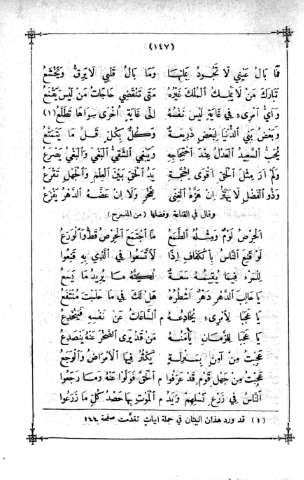 (١٤٧)
فَمَا بَالُ عَيْنِي لَا تَجُودُ بِمَائِهَا وَمَا بَالُ قَلْبِي لَا يَرِقُّ وَيَخْشَعُ
تَبَارَكَ مَنْ لَا يَمْلِكُ الْمُلْكَ غَيْرُهُ مَتَى تَنْقَضِي حَاجَاتُ مَنْ لَيْسَ يَشْبَعُ
وَأَيُّ امْرِئٍ فِي غَايَةٍ لَيْسَ نَفْسُهُ إِلَى غَايَةٍ أُخْرَى سِوَاهَا تَطَلَّعُ (١)
وَبَعْضُ بَنِي الدُّنْيَا لِبَعْضٍ ذَرِيعَةٌ وَكُلٌّ بِكُلٍّ قَلَّ مَا يَتَمَتَّعُ
يُحِبُّ السَّعِيدُ الْعَدْلَ عِنْدَ احْتِجَاجِهِ وَيَبْغِي الشَّقِيُّ الْبَغْيَ وَالْبَغْيُ يَصْرَعُ
وَلَمْ أَرَ مِثْلَ الْحَقِّ أَقْوَى لِحُجَّةٍ يَدُ الْحَقِّ بَيْنَ الْعِلْمِ وَالْجَهْلِ تَقْرَعُ
وَذُو الْفَضْلِ لَا يَهْتَزُّ إِنْ هَزَّهُ الْغِنَى لِفَخْرٍ وَلَا إِنْ عَضَّهُ الدَّهْرُ يَفْزَعُ
وقال في القناعة وفضلها (من المنسرح)
الْحِرْصُ لُؤْمٌ وَمِثْلُهُ الطَّمَعُ مَا اجْتَمَعَ الْحِرْصُ قَطُّ وَالْوَرَعُ
لَوْ قَنِعَ النَّاسُ بِالْكَفَافِ إِذًا لَاتَّسَعُوا فِي الَّذِي بِهِ قَنِعُوا
لِلْمَرْءِ فِيمَا يُقِيمُهُ سَعَةٌ لَكِنَّهُ مَا يُرِيدُ مَا يَسَعُ
يَا حَالِبَ الدَّهْرِ دَرَّ أَشْطُرِهِ هَلْ لَكَ فِي مَا حَلَبْتَ مُنْتَفَعُ
يَا عَجَبًا لِامْرِئٍ يُخَادِعُهُ م السَّاعَاتُ عَنْ نَفْسِهِ فَيَنْخَدِعُ
يَا عَجَبًا لِلزَّمَانِ يَأْمَنُهُ مَنْ قَدْ يَرَى الصَّخْرَ عَنْهُ يَنْصَدِعُ
عَجِبْتُ مِنْ آمِنٍ بِمَنْزِلَةٍ يَكْثُرُ فِيهَا الْأَمْرَاضُ وَالْوَجَعُ
عَجِبْتُ مِنْ جَهْلِ قَوْمٍ قَدْ عَرَفُوا م الْحَقَّ فَوَلَّوْا عَنْهُ وَمَا رَجَعُوا
النَّاسُ فِي زَرْعِ نَسْلِهِمْ وَيَدُ م الْمَوْتِ بِهَا حَصْدُ كُلِّ مَا زَرَعُوا
(١) قد ورد هذان البيتان في جملة ابيات تقدَّمت صفحة ١٤٤